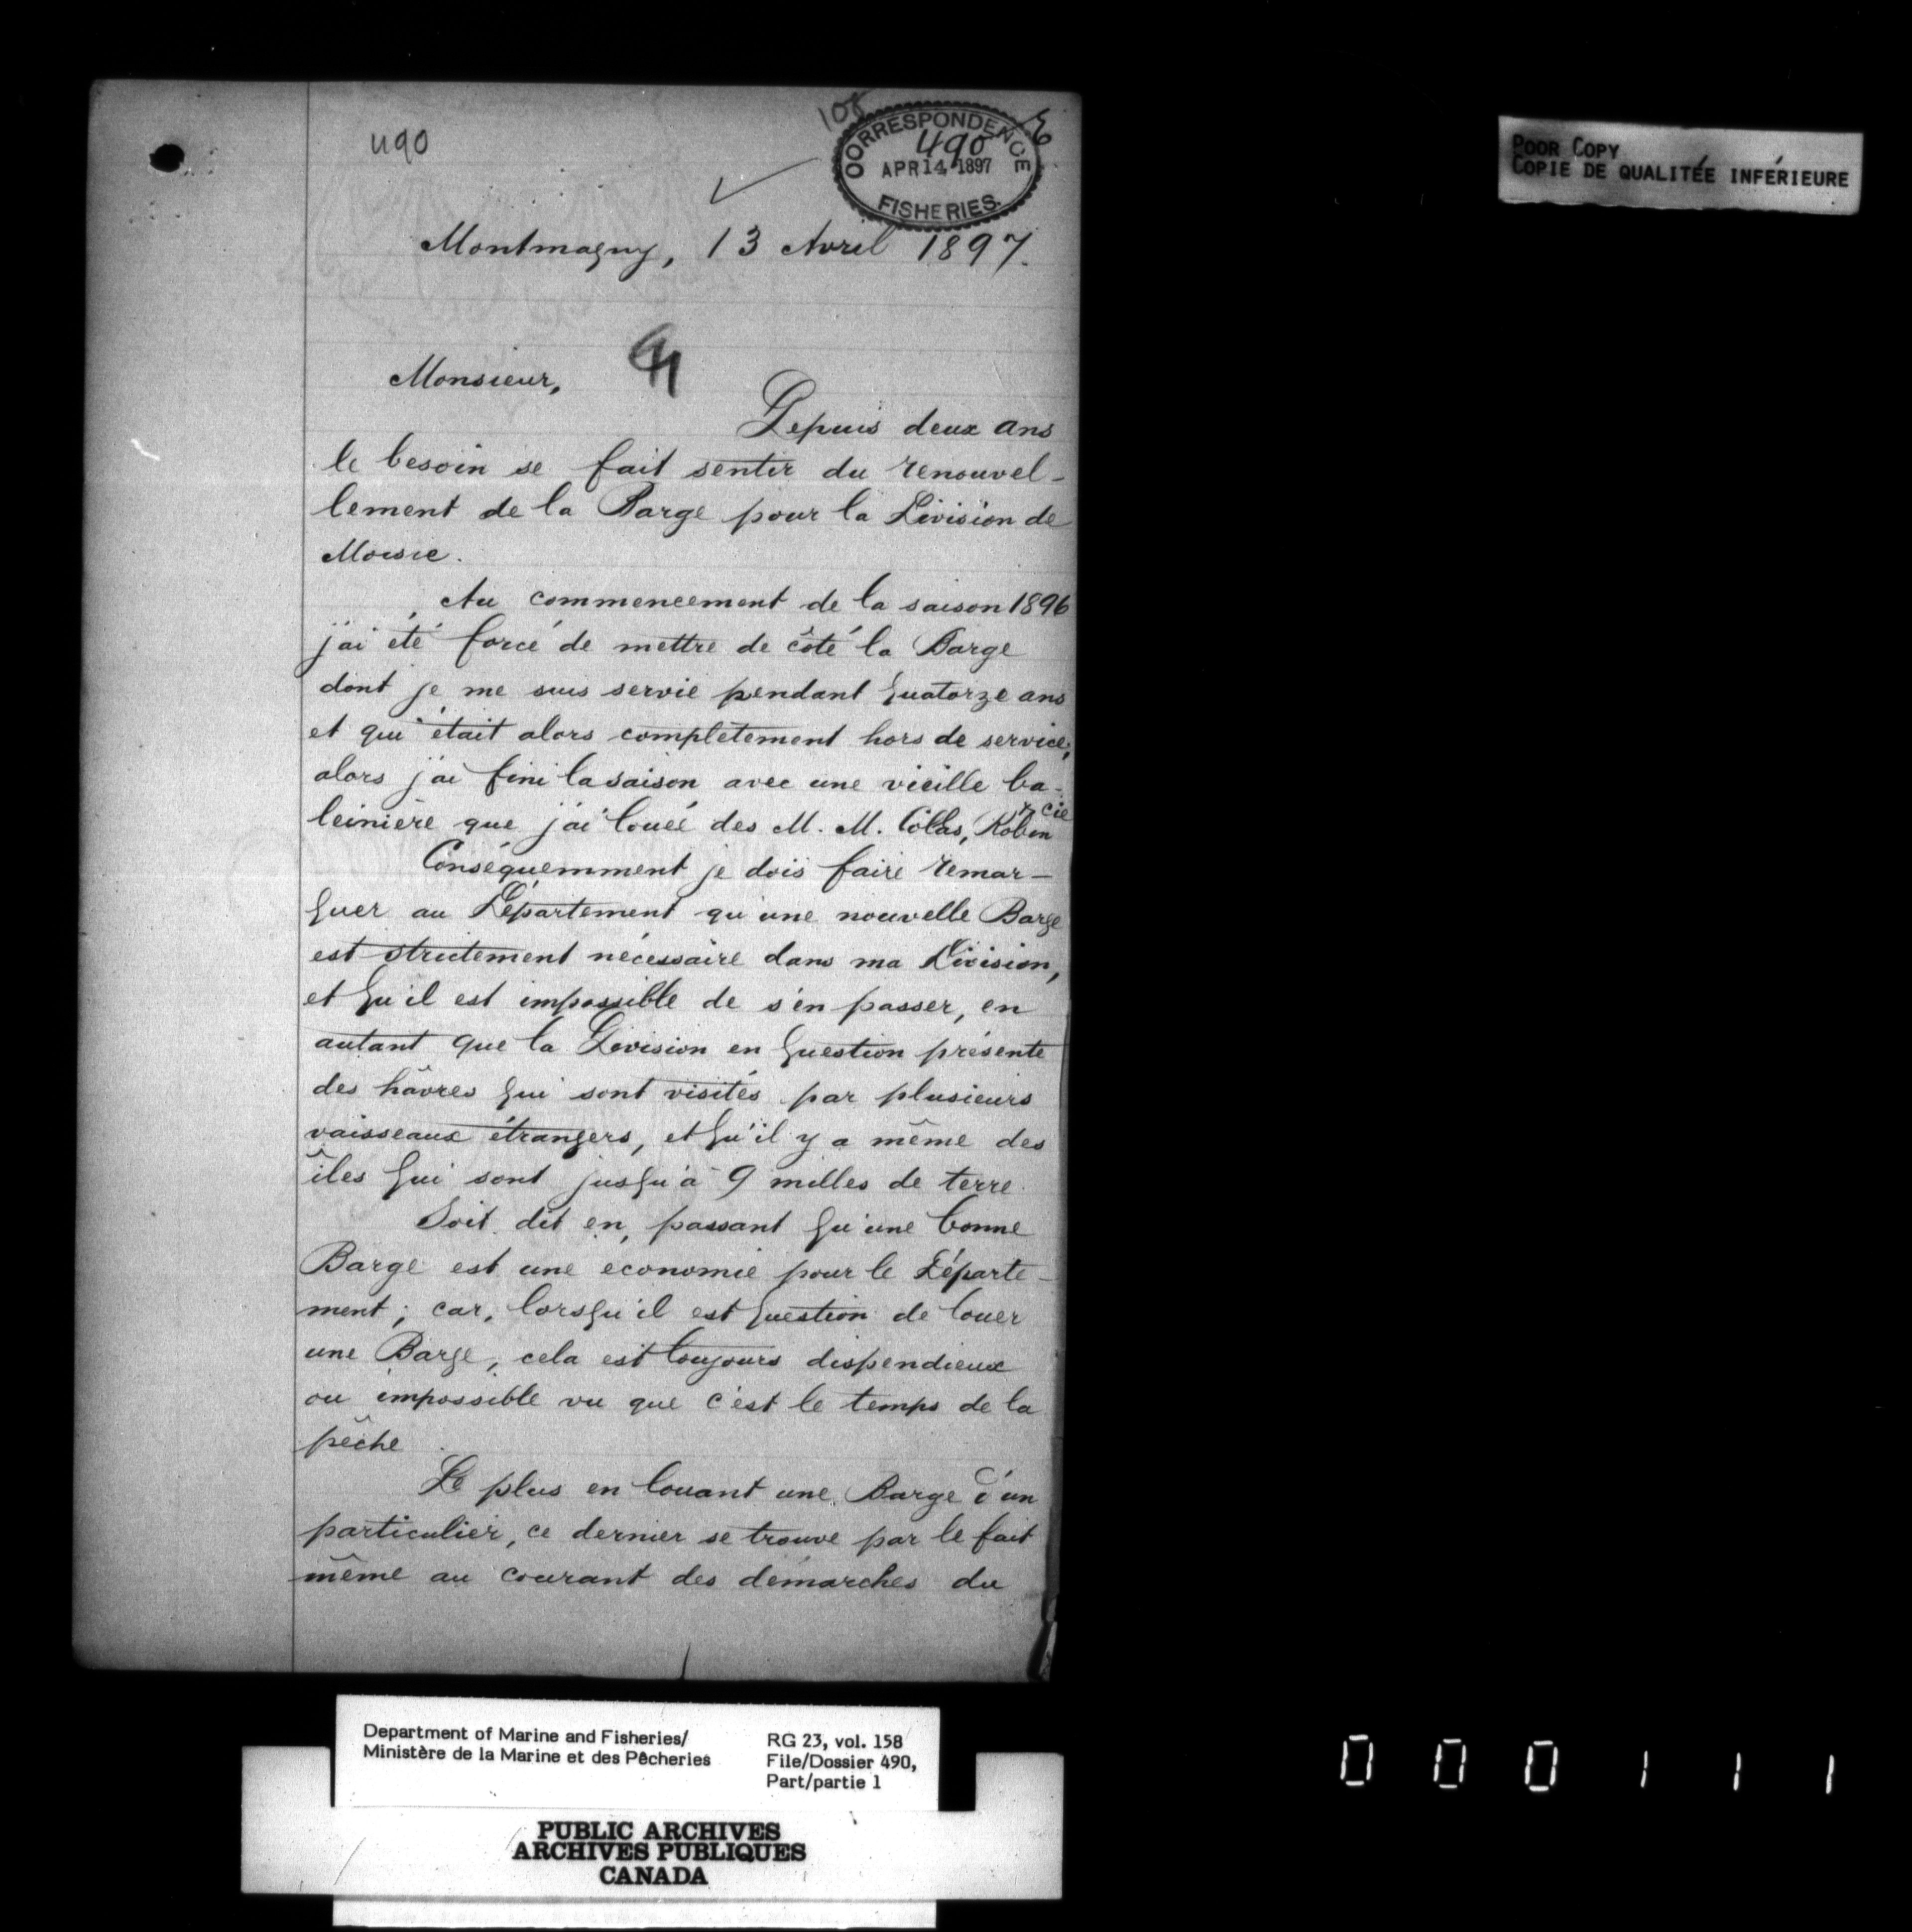 108
E
490
CORRESPONDENCE
490
APR 14 1897
FISHERIES.
POOR COPY
COPIE DE QUALITÉE INFÉRIEURE
Montmagny, 13 Avril 1897.
Monsieur,
Depuis deux ans
le besoin se fait sentir du renouvel-
lement de la Barge pour la Division de
Moisie.
Au commencement de la saison 1896
j'ai été forcé de mettre de côté la Barge
dont je me suis servie pendant quatorze ans
et qui était alors complètement hors de service;
alors j'ai fini la saison avec une vieille ba-
leinière que j'ai louée des M. M. Collas, Robin & cie
Conséquemment je dois faire remar-
quer au Département qu'une nouvelle Barge
est strictement nécessaire dans ma Division,
et qu'il est impossible de s'en passer, en
autant que la Division en question présente
des hâvres qui sont visités par plusieurs
vaisseaux étrangers, et qu'il y a même des
îles qui sont jusqu'à 9 milles de terre.
Soit dit en passant qu'une bonne
Barge est une économie pour le Départe-
ment; car, lorsqu'il est question de louer
une Barge, cela est toujours dispendieux
ou impossible vu que c'est le temps de la
pêche.
De plus en louant une Barge d'un
particulier, ce dernier se trouve par le fait
même au courant des démarches du
Department of Marine and Fisheries/
Ministère de la Marine et des Pêcheries
RG 23, vol. 158
File/Dossier 490,
Part/partie 1
PUBLIC ARCHIVES
ARCHIVES PUBLIQUES
CANADA
000111